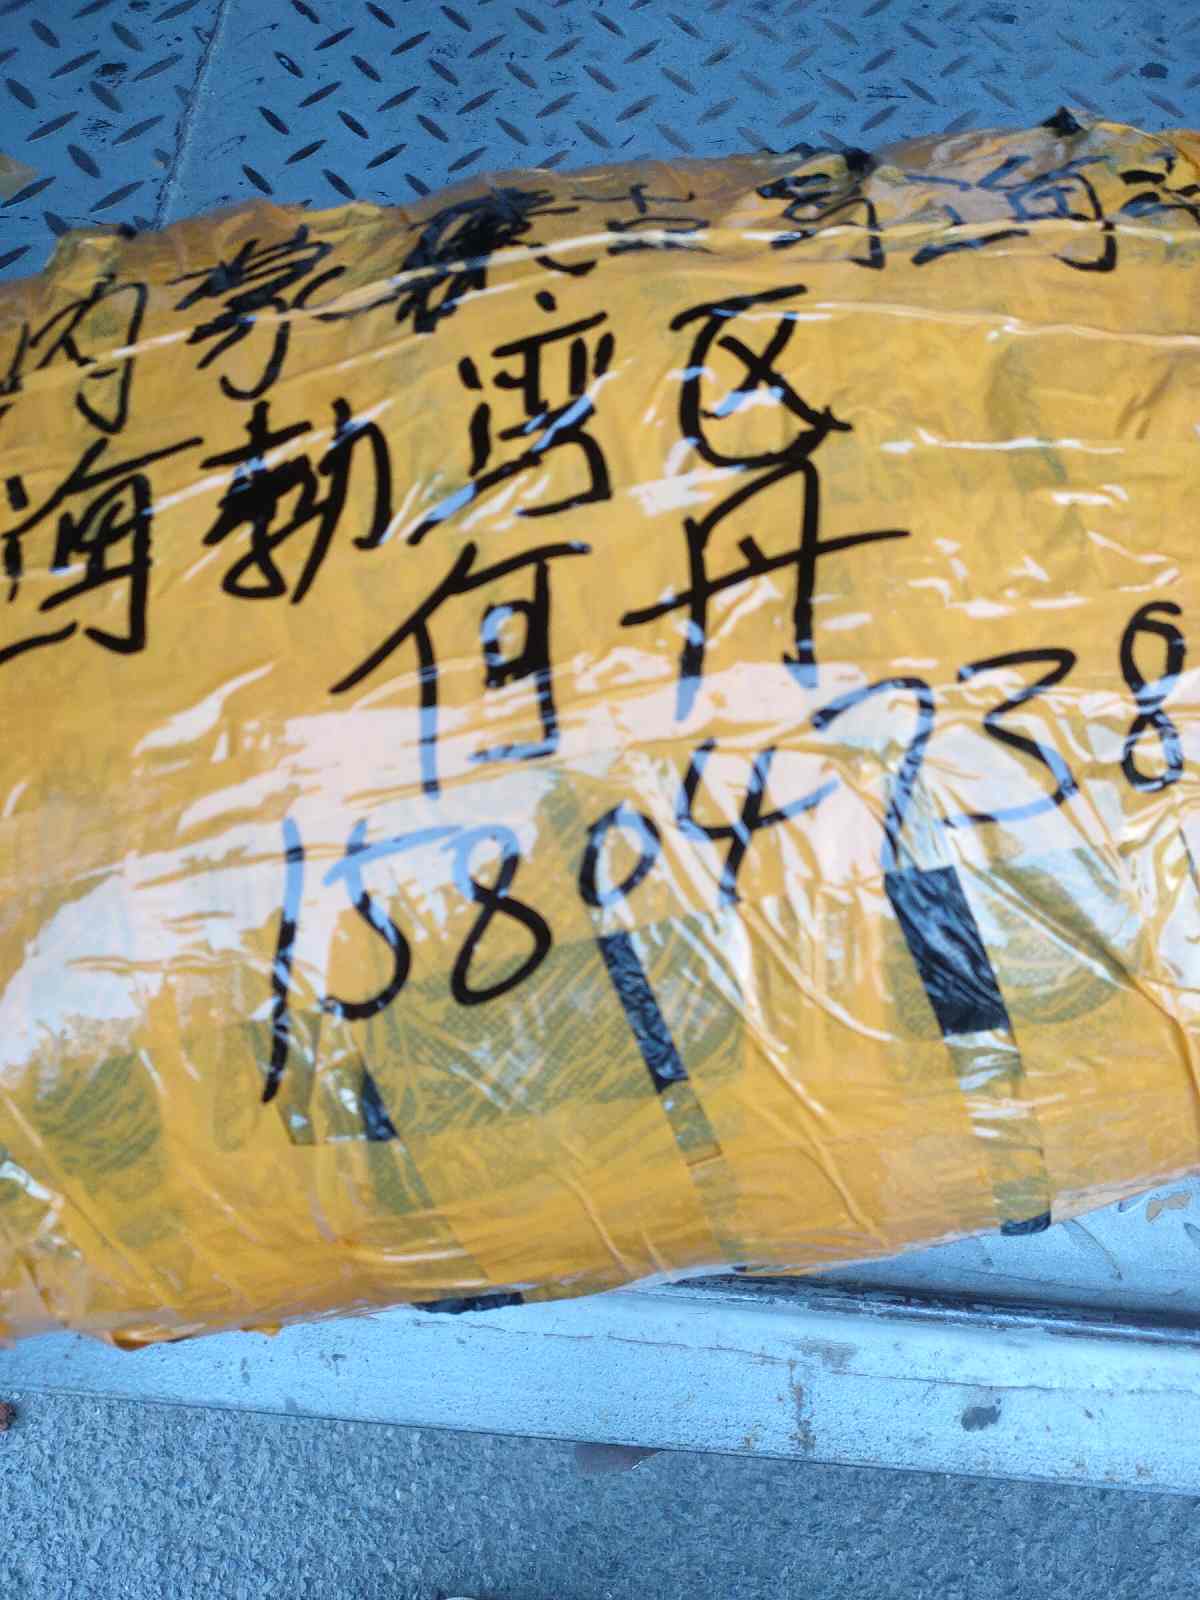 内蒙古乌海市
海勃湾区
何丹
15804738